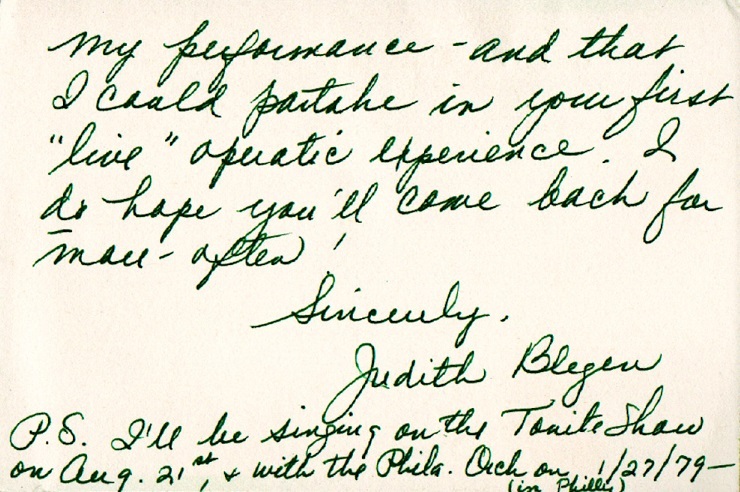 my performance - and that
I could partake in your first
"live" operatic experience. I
do hope you'll come back for
more - often!
Sincerely,
Judith Blegen
P.S. I'll be singing on the Tonite Show
on Aug. 21st, & with the Phila. Orch on 1/27/79 -
(in Philly)